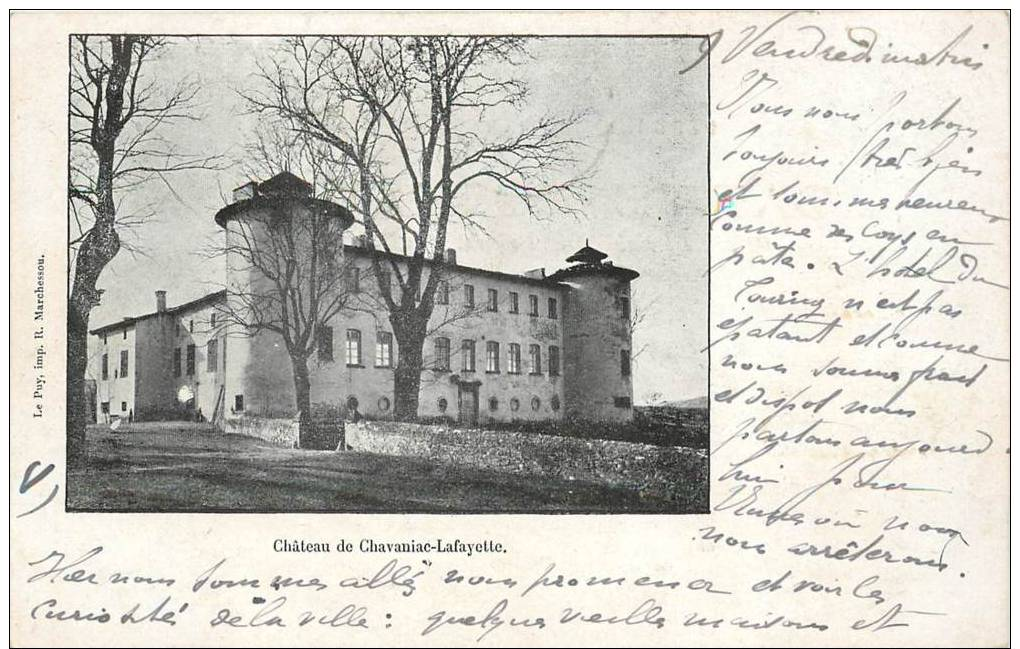 Vendredi matin
Nous nous portons
toujours très bien
et sommes heureux
comme des coqs en
pâte. L'hôtel du
Touring n'est pas
épatant et comme
nous sommes frais
et dispos nous
partons aujourd
hui pour
où nous
nous arrêterons.
Le Puy, imp. R. Marchessou.
Château de Chavaniac-Lafayette.
Hier nous sommes allés nous promener et voir les
curiosités de la ville : quelques vieilles maisons et